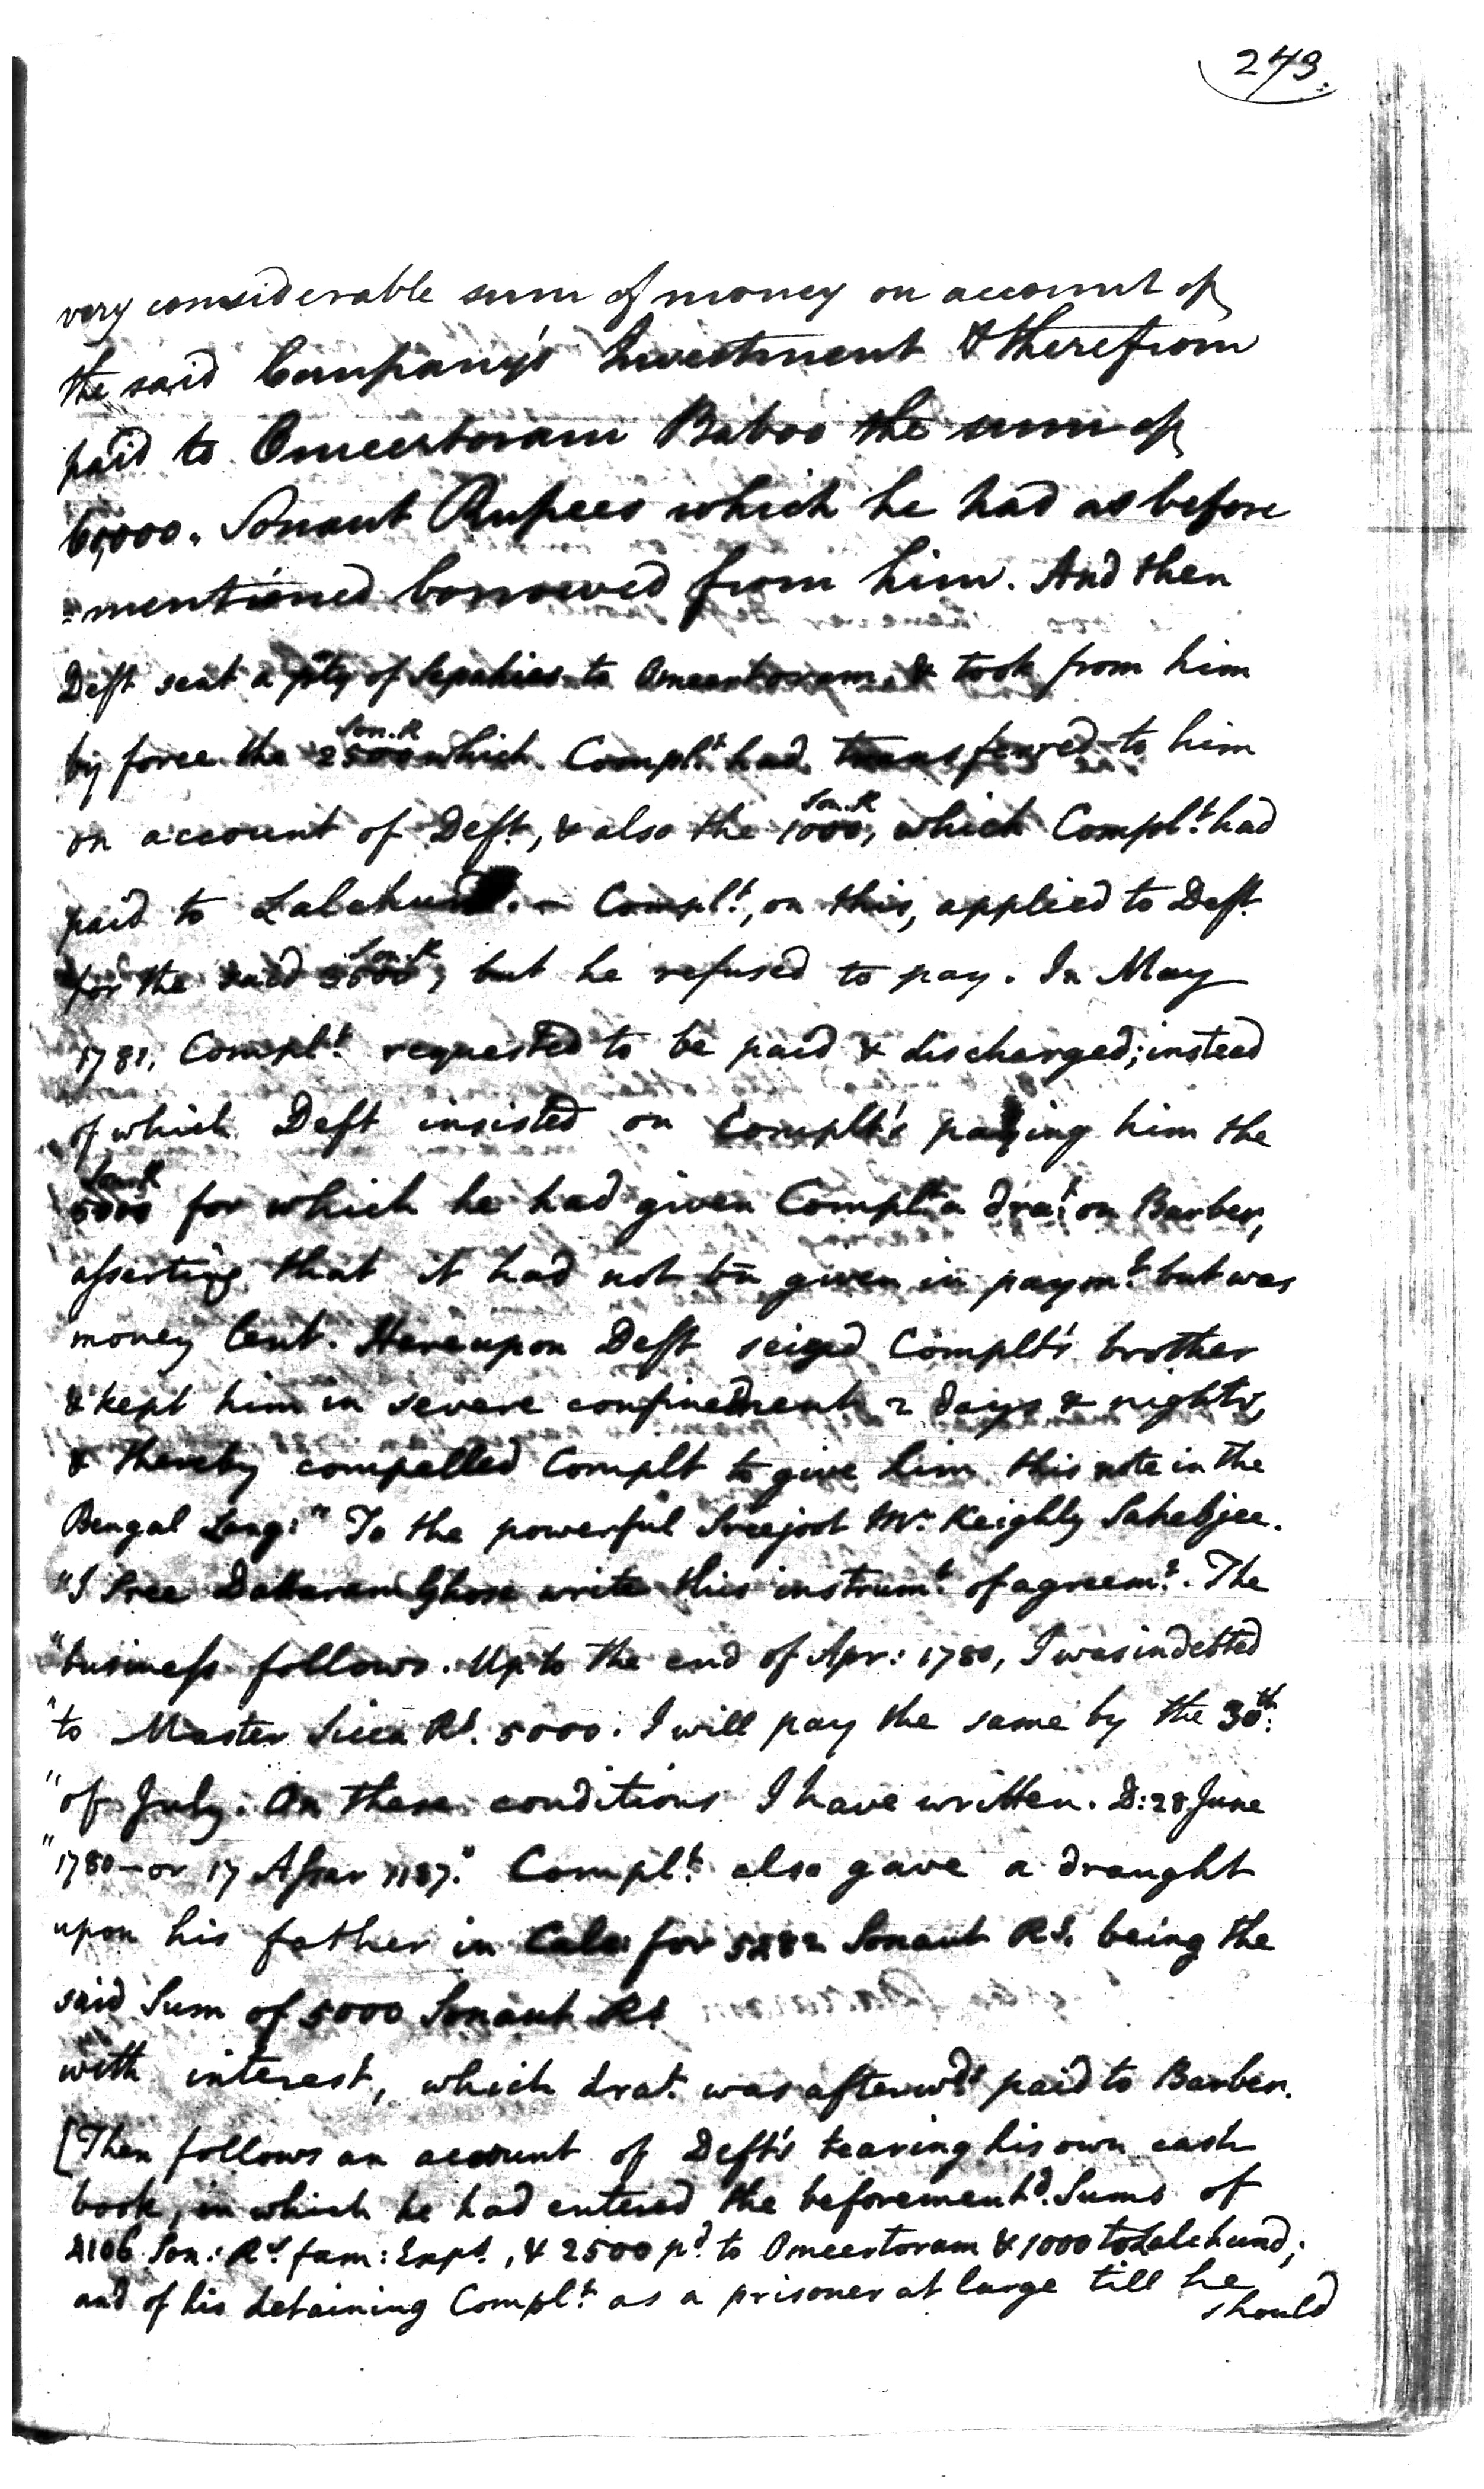 243.
very considerable sum of money on account of
the said Company's Investment & therefrom
paid to Omeertoram Baboo the sum of
60,000. Sonaut Rupees which he had as before
=mentioned borrowed from him. And then
Deft sent a pty of Sepahies to Omeertoram & took from him
by force the 2500 Son. R which Complt. had transferred to him
on account of Deft., & also the 1000 Son. R, which Complt. had
paid to Lalchund. – Complt., on this, applied to Deft.
for the said 3500 Son. R, but he refused to pay. In May
1781, Complt. requested to be paid & discharged; instead
of which Deft insisted on Complt's paying him the
5000 Son. R for which he had given Complt. a drat. on Barber,
asserting that it had not bn given in paymt. but was
money lent. Hereupon Deft seized Complt's brother
& kept him in severe confinement 2 days & nights,
& thereby compelled Complt to give him this note in the
Bengal Lang: "To the powerful Sreejoot Mr. Keighly Sahebjee.
"I Sree Dattaram Ghose write this instrumt. of agreemt. The
"business follows. Up to the end of Apr: 1780, I was indebted
"to Master Sicca Rs. 5000. I will pay the same by the 30th:
"of July. On these conditions I have written. D: 28 June
"1780 – or 17 Assar 1187." Complt. also gave a draught
upon his father in Cala: for 5282 Sonaut Rs. being the
said Sum of 5000 Sonaut Rs
with interest, which drat. was afterwds paid to Barber.
[Then follows an account of Deft's tearing his own cash
book, in which he had entered the beforementd. Sums of
2106 Son: Rs. fam: Exps., & 2500 pd to Omeertoram & 1000 to Lalchund;
and of his detaining Complt. as a prisoner at large till he
should